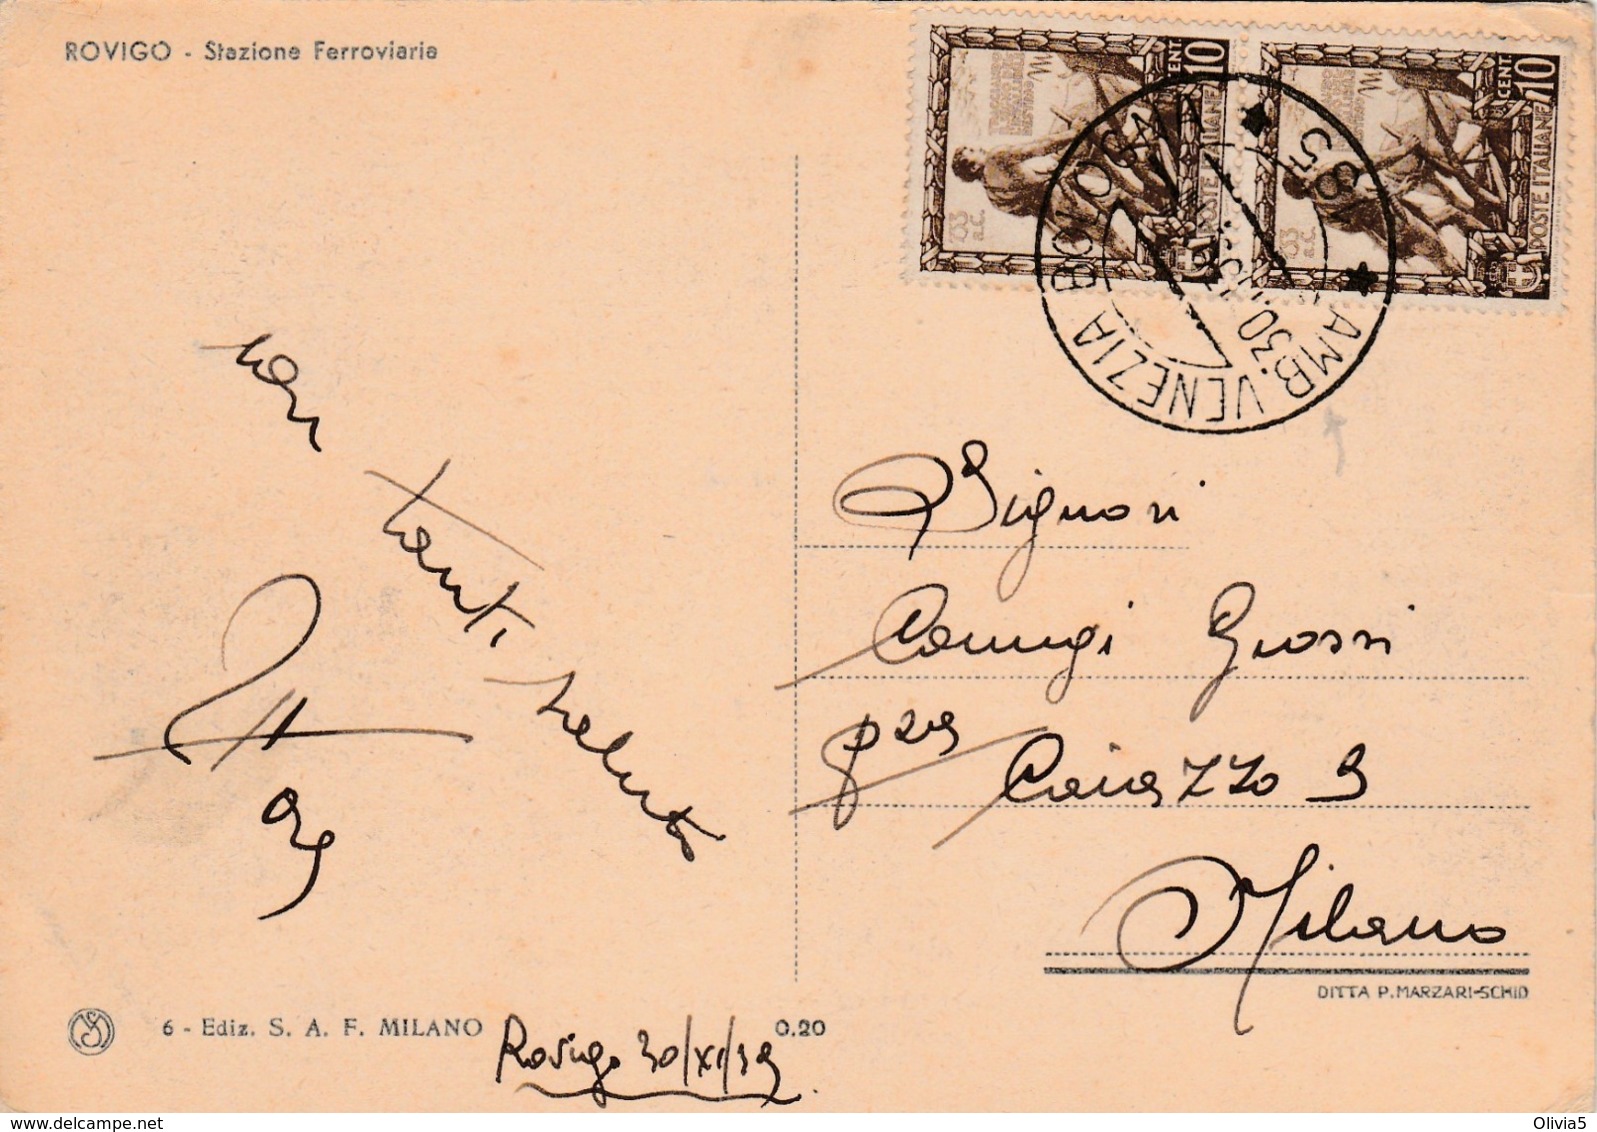 ROVIGO - Stazione Ferroviaria
CENT 10
POSTE ITALIANE
CENT 10
POSTE ITALIANE
63
a.C.
63
a.C.
AMB. VENEZIA BOLOGNA
85
30.11
Signori
con tanti saluti
Grossi
Caiazzo 9
Milano
DITTA P. MARZARI-SCHIO
6 - Ediz. S. A. F. MILANO
0.20
Rovigo 30/XI/39
delcampe.net
Olivia5